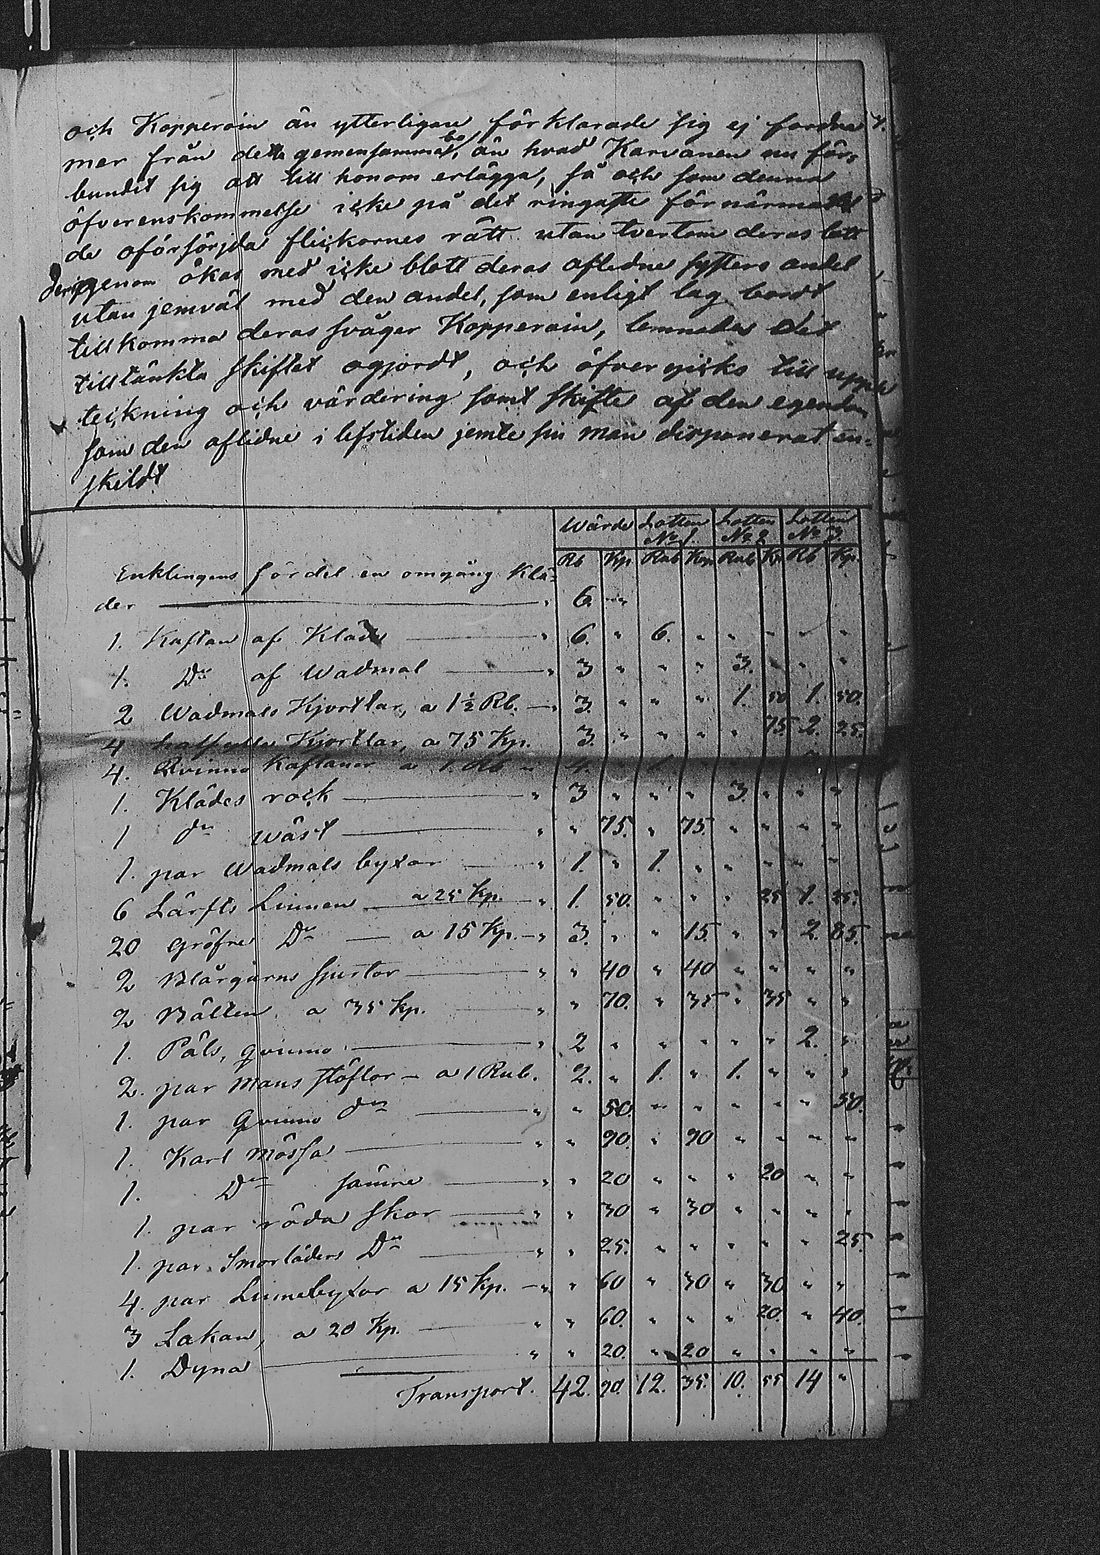 och Kopperoin än ytterligare förklarade sig ej fordra
mer från detta gemensamma bo, än hvad Karvanen nu för-
bundit sig att till honom erlägga, så och som denna
öfverenskommelse icke på det ringaste förnärmade
de oförsörjda flickornes rätt utan tvertom deras lott
derigenom ökas med icke blott deras aflidne systers andel
utan jemväl med den andel, som enligt lag bordt
tillkomma deras svåger Kopperoin, lemnades det
tilltänkta skiftet ogjordt, och öfvergicks till upp-
teckning och värdering samt skifte af den egendom
som den aflidne i lifstiden jemte sin man disponerat en-
skildt
Wärde Lotten Lotten Lotten
No 1. No 2 No 3.
Rb Kp. Rub Kop Rub Kp Rb Kp.
Enklingens fördel en omgång Klä-
der " 6. "
1. Kaftan af Kläde " 6. " 6. " " " " "
1. Do af Wadmal " 3 " " " 3. " " "
2 Wadmals Kjortlar, a 1½ Rb. " 3. " " " 1. 50. 1. 50.
4 Kjortlar, a 75 Kp. 3. " " " " 75. 2. 25.
4. Qvinno Kaftaner a 1. Rb 4. 1.
1. Klädes rock " 3 " " " 3. " " "
1 do Wäst " " 75. " 75. " " " "
1. par Wadmals byxor " 1. " 1. " " " " "
6 Lärfts Linnen a 25 Kp. " 1. 50. " " " 25 1. 25.
20 Gröfre Do a 15 Kp. " 3. " " 15. " " 2. 85.
2 Blårgarns skjortor " " 40 " 40 " " " "
2 Bälten a 35 Kp. " " 70. " 35 " 35 " "
1. Päls, qvinno " 2 " " " " " 2. "
2. par Mans stöflor a 1 Rub. 2. " 1. " 1. " " "
1. par Qvinno do " " 50. " " " " " 50.
1. Karl mössa " " 90. " 90 " " " "
1. Do sämre " " 20 " " " 20 " "
1. par röda skor " " 30 " 30 " " " "
1. par Smorläders Do " " 25. " " " " " 25.
4. par Linnebyxor a 15 Kp. " " 60 " 30 " 30 " "
3 Lakan, a 20 Kp. " " 60. " " " 20. " 40.
1. Dyna " " 20. " 20 " " " "
Transport. 42. 90. 12. 35. 10. 55 14 "